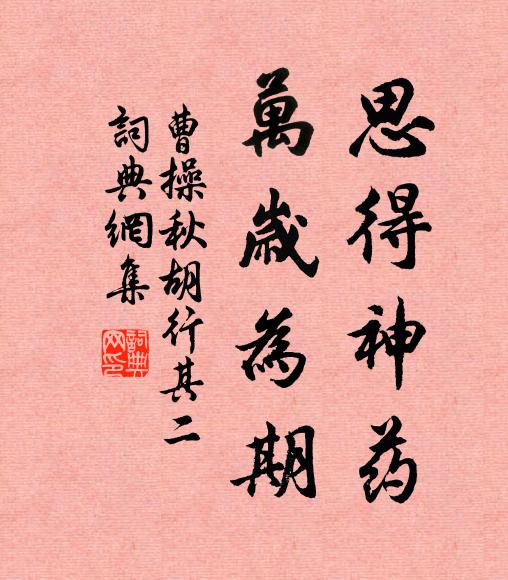 思得神药
萬歲為期
曹操秋胡行其二
詞典網集
詞典
网印